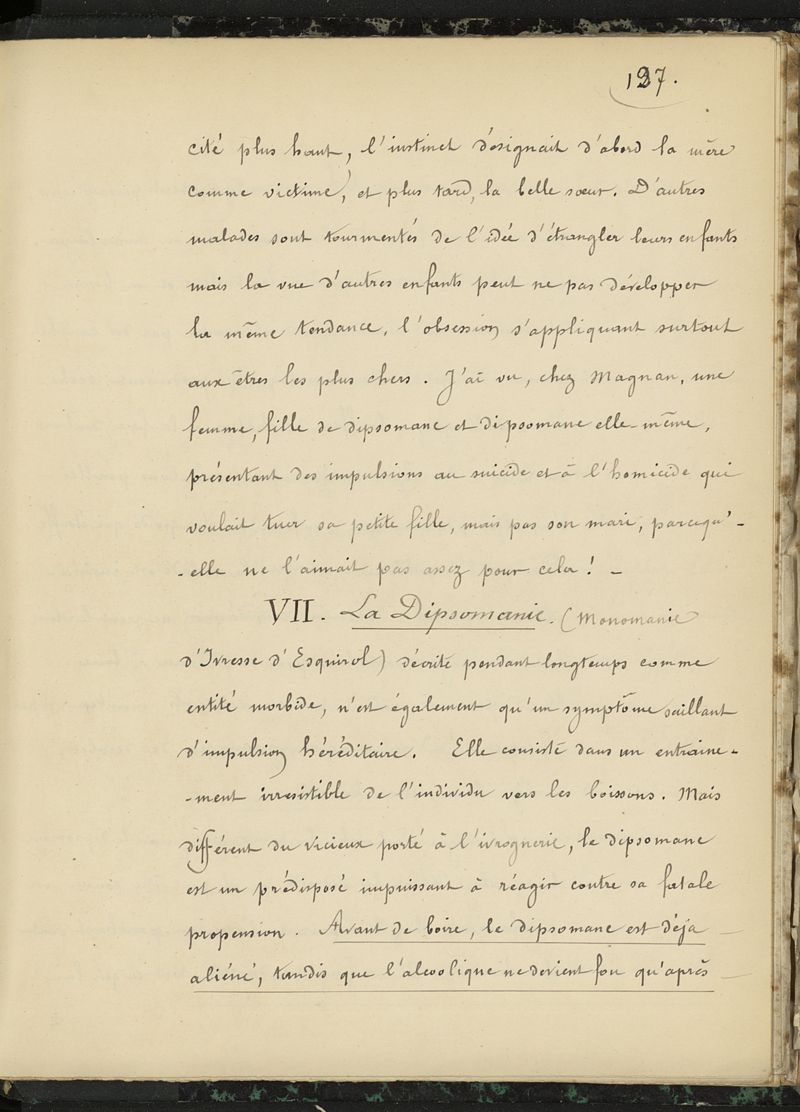 137.
cité plus haut, l'instinct désignait d'abord la mère
comme victime, et plus tard, la belle sœur. D'autres
malades sont tourmentés de l'idée d'étrangler leurs enfants
mais la vue d'autres enfants peut ne pas développer
la même tendance, l'obsession s'appliquant surtout
aux êtres les plus chers. J'ai vu, chez Magnan, une
femme, fille de dipsomane et dipsomane elle-même,
présentant des impulsions au suicide et à l'homicide qui
voulait tuer sa petite fille, mais pas son mari, parcequ'-
-elle ne l'aimait pas assez pour cela! -
VII. La Dipsomanie. (Monomanie
d'Ivresse d'Esquirol) décrite pendant longtemps comme
entité morbide, n'est également qu'un symptôme saillant
d'impulsion héréditaire. Elle consiste dans un entraine-
-ment irresistible de l'individu vers les boissons. Mais
différent du vicieux porté à l'ivrognerie, le dipsomane
est un prédisposé impuissant à réagir contre sa fatale
propension. Avant de boire, le dipsomane est déja
aliéné, tandis que l'alcoolique ne devient fou qu'après